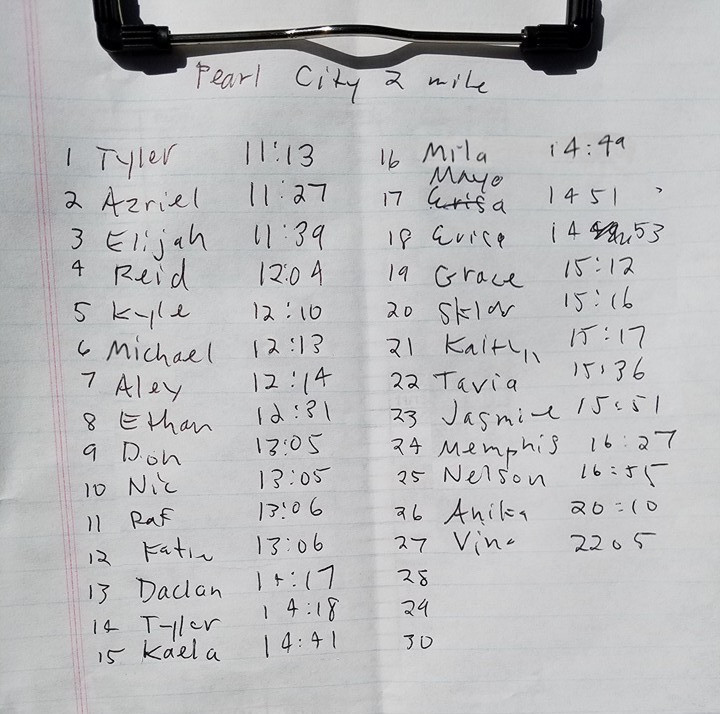 Pearl City 2 mile
1 Tyler 11:13
2 Azriel 11:27
3 Elijah 11:39
4 Reid 12:04
5 Kyle 12:10
6 Michael 12:13
7 Aley 12:14
8 Ethan 12:31
9 Don 13:05
10 Nic 13:05
11 Raf 13:06
12 Katie 13:06
13 Daclan 14:17
14 Tyler 14:18
15 Kaela 14:41
16 Mila 14:49
Mayo
17 1451
18 Erica 14 53
19 Grace 15:12
20 Sklar 15:16
21 Kaitlyn 15:17
22 Tavia 15:36
23 Jasmine 15:51
24 Memphis 16:27
25 Nelson 16:55
26 Anika 20:10
27 2205
28
29
30